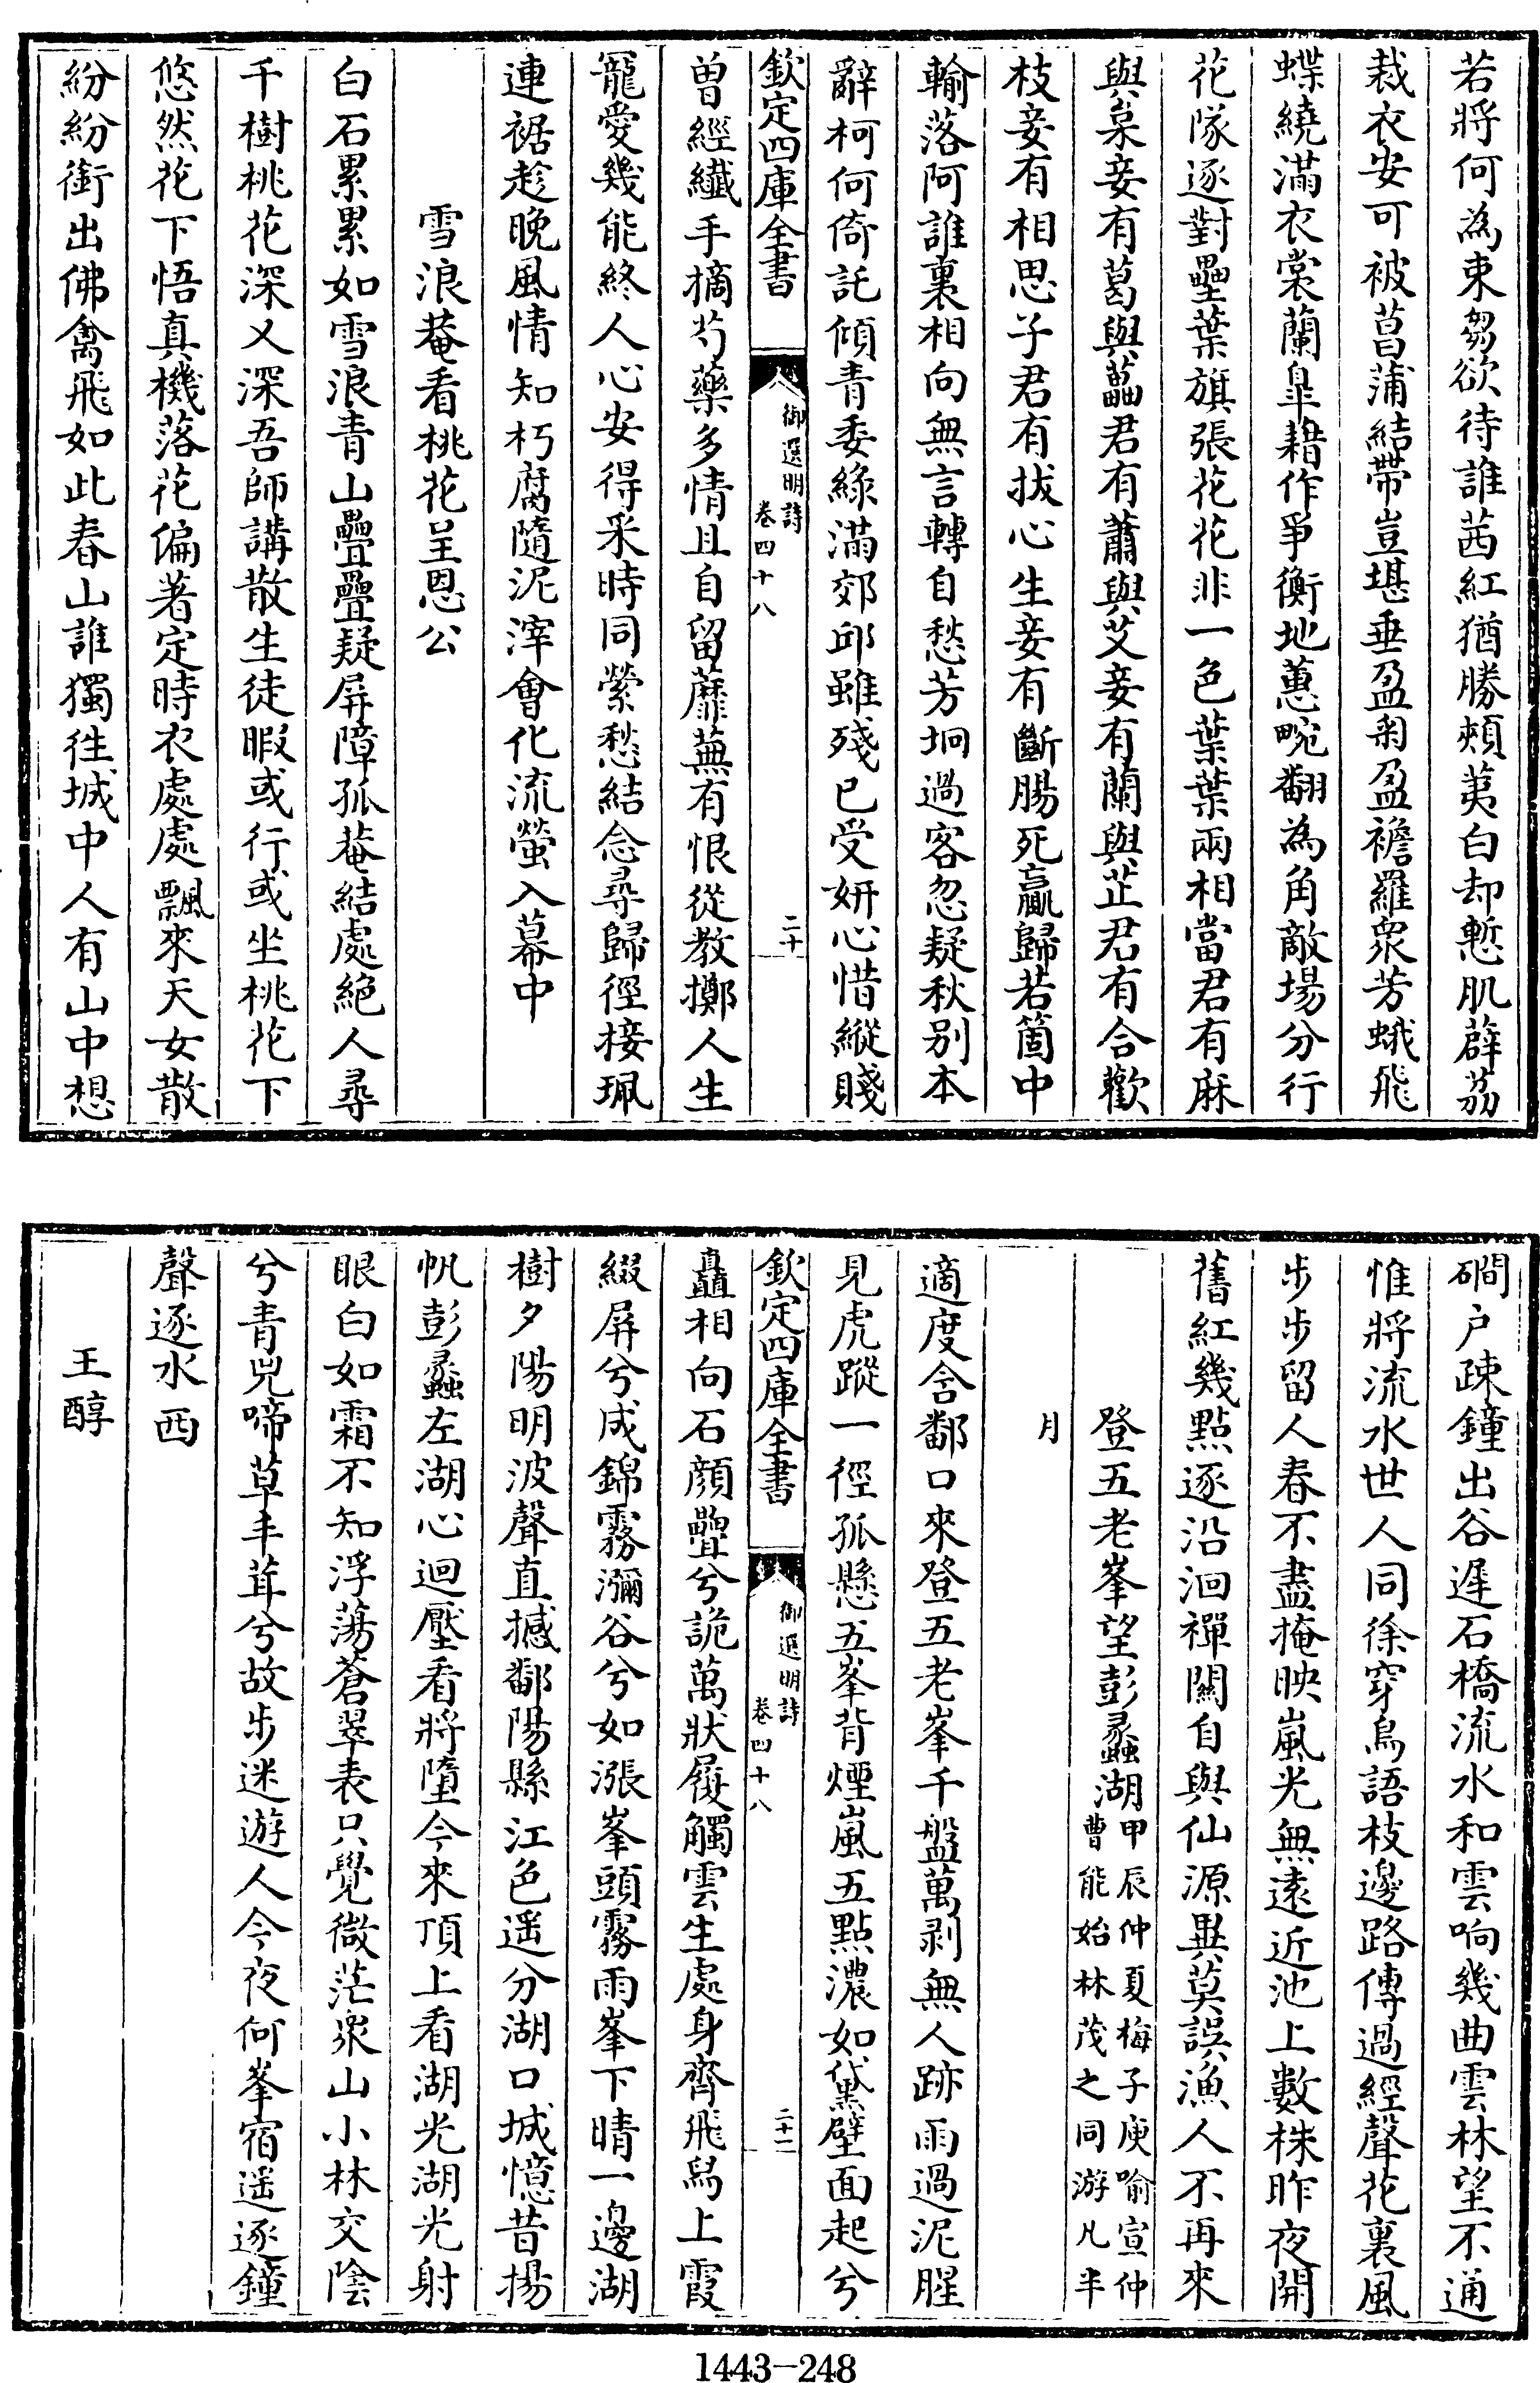 若將何為束芻欲待誰茜紅猶勝頰荑白却慙肌薜荔
裁衣安可被菖蒲結帶豈堪垂盈匊盈襜羅衆芳蛾飛
蝶繞滿衣裳蘭臯耤作爭衡地蕙畹翻為角敵場分行
花隊逐對壘葉旗張花花非一色葉葉兩相當君有麻
與枲妾有葛與藟君有蕭與艾妾有蘭與芷君有合歡
枝妾有相思子君有拔心生妾有斷腸死贏歸若箇中
輸落阿誰裏相向無言轉自愁芳坰過客忽疑秋别本
辭柯何倚託傾青委緑滿郊邱雖殘已受妍心惜縱賤
欽定四庫全書
御選明詩
卷四十八
二十
曽經纎手摘芍藥多情且自留蘼蕪有恨從教擲人生
寵愛幾能終人心安得采時同縈愁結念尋歸徑接珮
連裾趁晚風情知朽腐隨泥滓會化流螢入幕中
雪浪菴看桃花呈恩公
白石累累如雪浪青山疊疊疑屏障孤菴結處絶人尋
千樹桃花深又深吾師講散生徒暇或行或坐桃花下
悠然花下悟真機落花偏著定時衣處處飄來天女散
紛紛銜出佛禽飛如此春山誰獨徃城中人有山中想
磵户疎鐘出谷遲石橋流水和雲响幾曲雲林望不通
惟將流水世人同徐穿鳥語枝邊路傳過經聲花裏風
步步留人春不盡掩映嵐光無遠近池上數株昨夜開
舊紅幾點逐沿洄禪關自與仙源異莫誤漁人不再來
登五老峯望彭蠡湖甲辰仲夏梅子庾喻宣仲
曹能始林茂之同游凡半
月
適度含鄱口來登五老峯千盤萬剥無人跡雨過泥腥
見虎蹤一徑孤懸五峯背煙嵐五點濃如黛壁面起兮
欽定四庫全書
御選明詩
卷四十八
二十一
矗相向石顔疊兮詭萬狀履觸雲生處身齊飛舄上霞
綴屏兮成錦霧瀰谷兮如漲峯頭霧雨峯下晴一邊湖
樹夕陽明波聲直撼鄱陽縣江色遥分湖口城憶昔揚
帆彭蠡左湖心迴壓看將墮今來頂上看湖光湖光射
眼白如霜不知浮蕩蒼翠表只覺微茫衆山小林交陰
兮青兕啼草丰茸兮故步迷遊人今夜何峯宿遥逐鐘
聲逐水西
王醇
1443-248